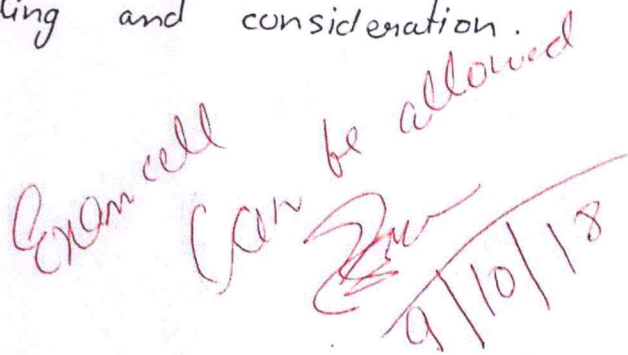 ling and consideration.
Exam cell
Can be allowed
9/10/18